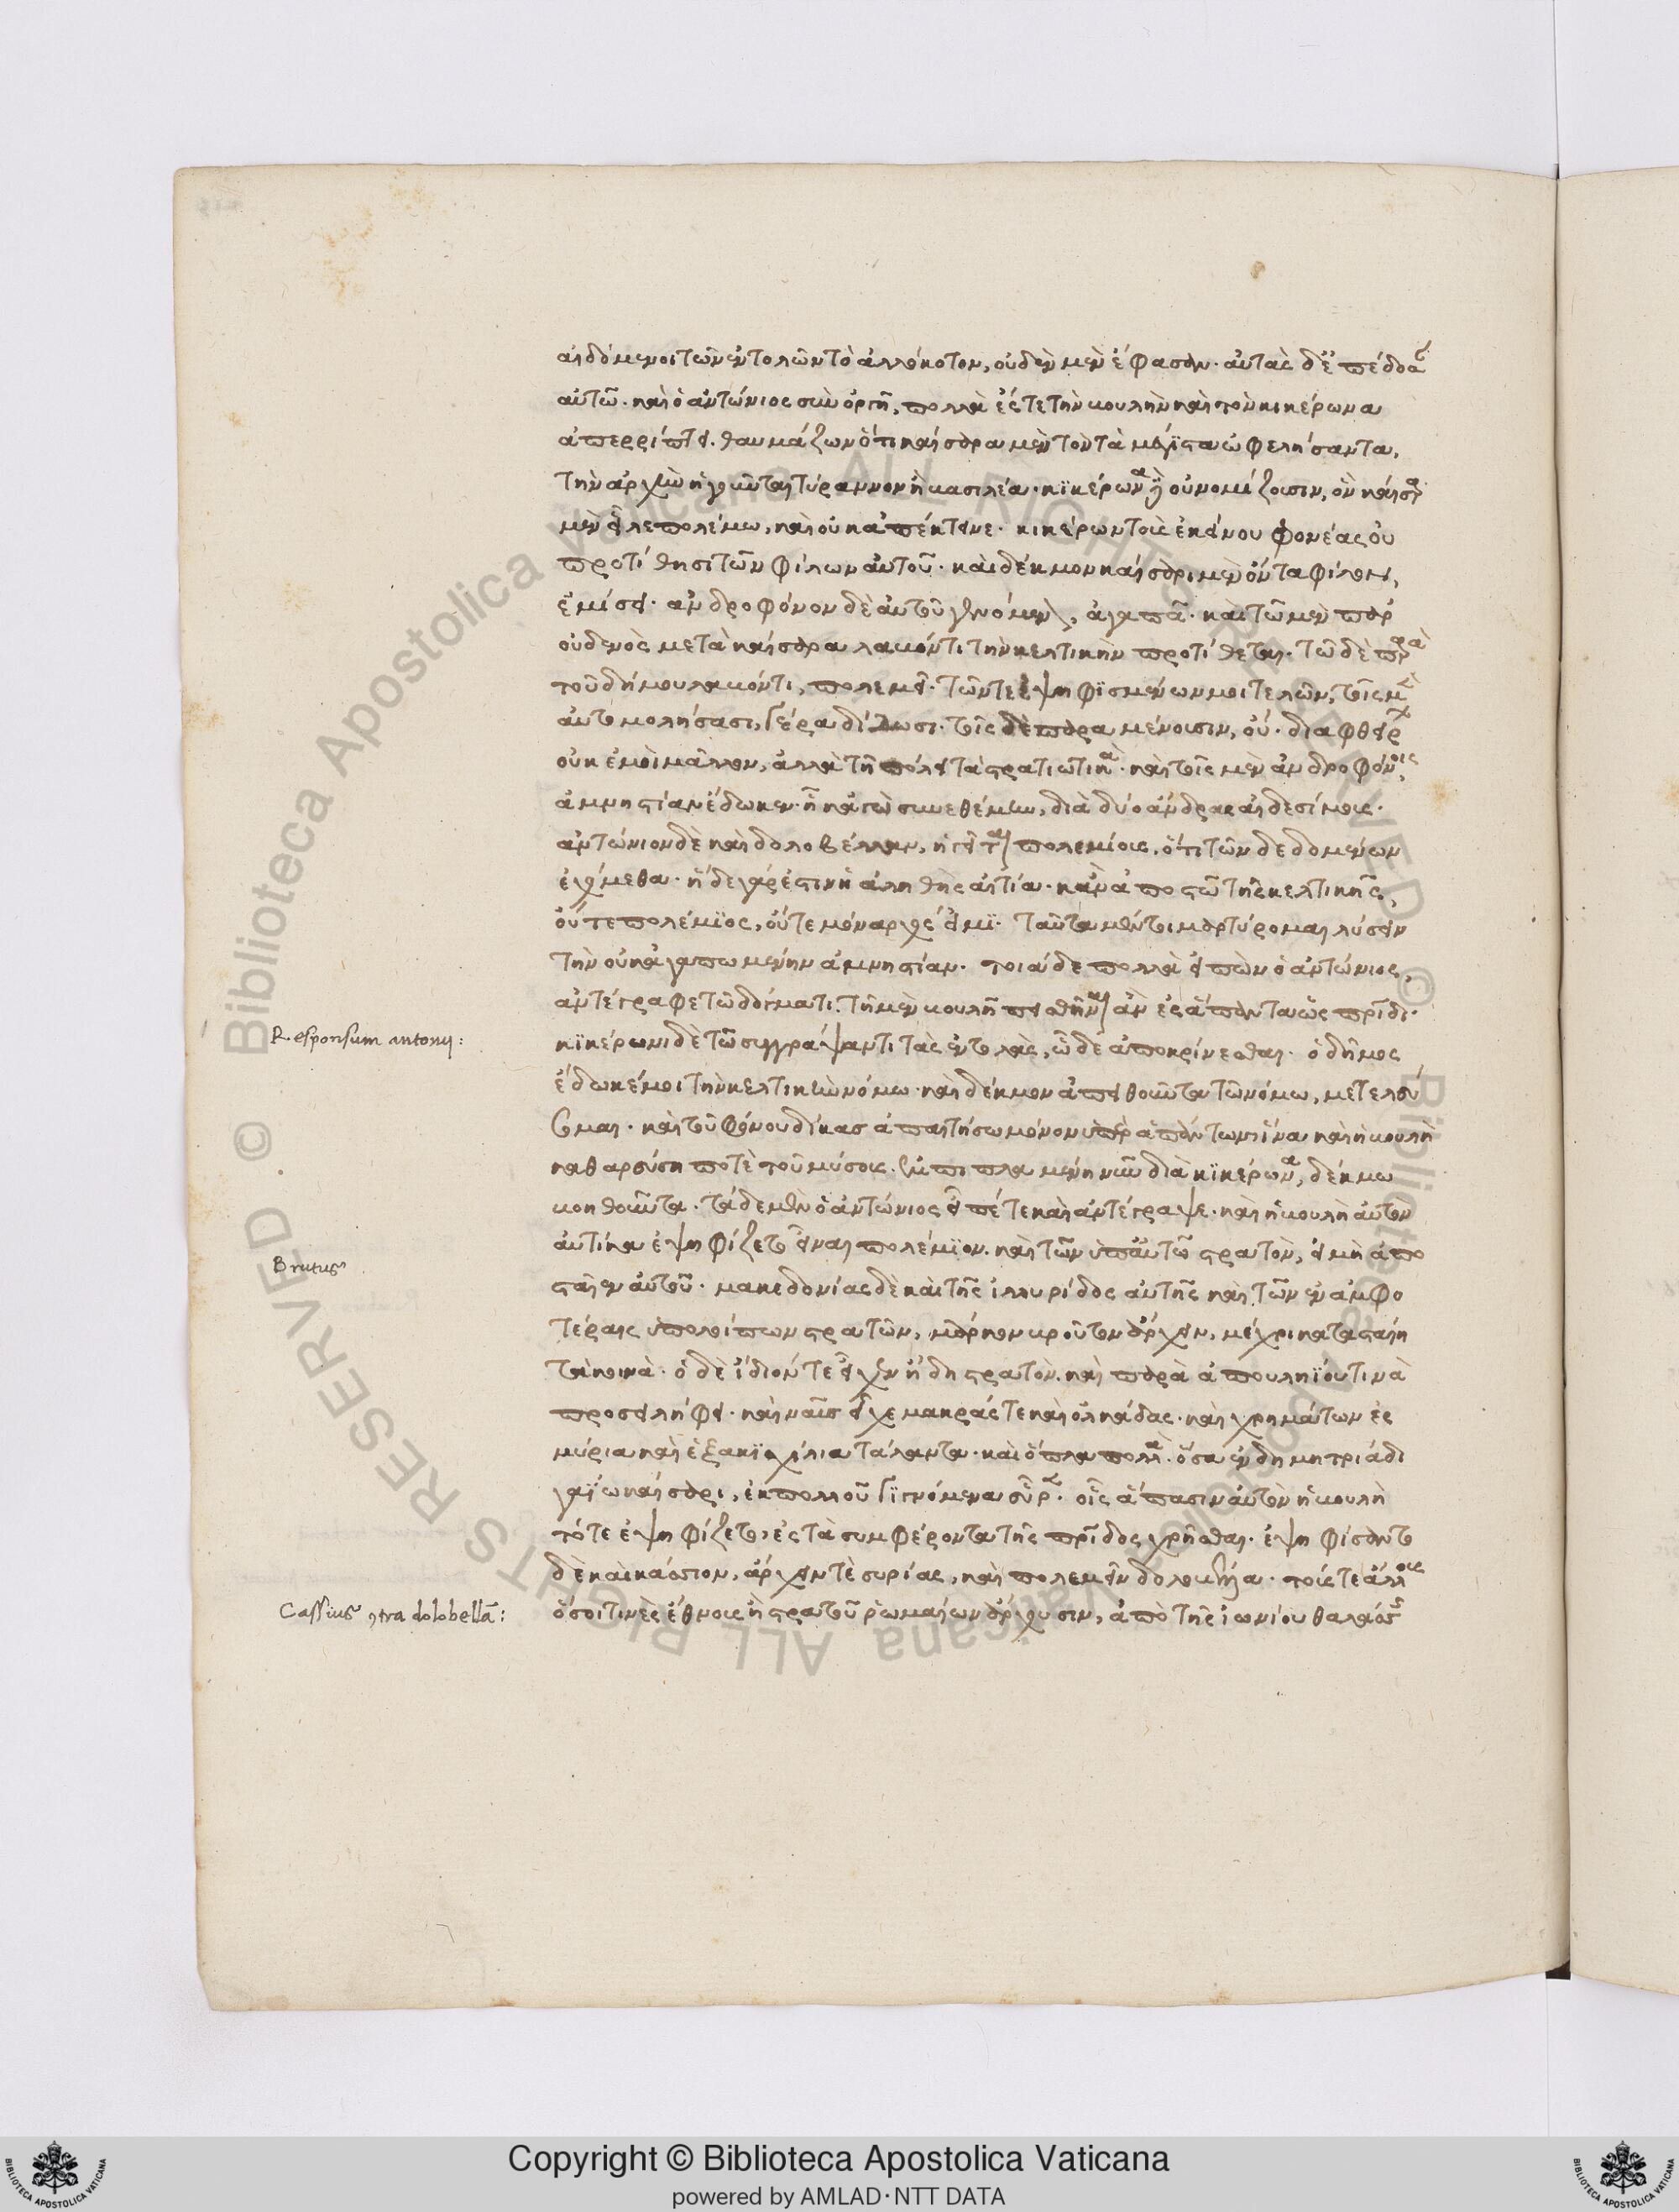 αἰδόμενοι τῶν ἐντολῶν τὸ ἀλλόκοτον, οὐδὲν μὲν ἔφασαν· αὐτὰς δὲ ἐπέδοσαν
αὐτῶ· καὶ ὁ ἀντώνιος σὺν ὀργῆ, πολλὰ ἔς τε τὴν βουλὴν καὶ τὸν κικέρωνα
ἀπερρίπτει. θαυμάζων ὅτι καίσαρα μὲν τὸν τὰ μέγιστα ὠφελήσαντα,
τὴν ἀρχὴν ἡγοῦνται τύραννον ἢ βασιλέα· κικέρωνα δὲ οὐ νομίζουσιν, ὃν καίσαρ
μὲν εἷλε πολέμω, καὶ οὐκ ἀπέκτεινε· κικέρων τοὺς ἐκείνου φονέας οὐ
προτίθησι τῶν φίλων αὐτοῦ· καὶ δέκμον καίσαρι μὲν ὄντα φίλον,
ἐμίσει· ἀνδροφόνον δὲ αὐτοῦ γενόμενον, ἀγαπᾶ· καὶ τῶ μὲν παρ'
οὐδενὸς μετὰ καίσαρα λαβόντι τὴν κελτικὴν προτίθεται· τῶ δὲ παρὰ
τοῦ δήμου λαβόντι, πολεμεῖ· τῶν τε ἐψηφισμένων μοι τελῶν, τοῖς μὲν
αὐτομολήσασι, γέρα δίδωσι· τοῖς δὲ παραμένουσιν, οὔ· διαφθείρων
οὐκ ἐμοὶ μᾶλλον, ἀλλὰ τῆ πόλει τὰ στρατιωτικὰ· καὶ τοῖς μὲν ἀνδροφόνοις,
ἀμνηστίαν ἔδωκεν· ἧ κἀγὼ συνεθέμην, διὰ δύο ἄνδρας αἰδεσίμους·
ἀντώνιον δὲ καὶ δολοβέλλαν, ἡγεῖται πολεμίους, ὅτι τῶν δεδομένων
ἐχόμεθα· ἥδε γάρ ἐστιν ἡ ἀληθὴς αἰτία· κἂν ἀποστῶ τῆς κελτικῆς,
οὔτε πολέμιος, οὔτε μόναρχός εἰμι· ταῦτα μέν τοι μαρτύρομαι λύσειν
τὴν οὐκ ἀγαπωμένην ἀμνηστίαν. τοιάδε πολλὰ εἰπὼν ὁ ἀντώνιος,
ἀντέγραφε τῶ δόγματι. τῆ μὲν βουλῆ πεισθῆναι ἂν ἐς ἅπαντα ὡς πρίδι·
Responsum antonij:
κικέρωνι δὲ τῶ συγγράψαντι τὰς ἐντολὰς, ὧδε ἀποκρίνεσθαι· ὁ δῆμος
ἔδωκέ μοι τὴν κελτικὴν νόμω· καὶ δέκμον ἀπειθοῦντα τῶ νόμω, μετελεύ
σομαι· καὶ τοῦ φόνου δίκας ἀπαιτήσω μόνον ὑπὲρ ἁπάντων· ἵνα καὶ ἡ βουλὴ
καθαρεύση ποτὲ τοῦ μύσους. ἐμπιπλαμένη νῦν διὰ κικέρωνα, δέκμω
βοηθοῦντα. τάδε μὲν ὁ ἀντώνιος εἶπέ τε καὶ ἀντέγραψε· καὶ ἡ βουλὴ αὐτὸν
Brutus
αὐτίκα ἐψηφίζετο εἶναι πολέμιον. καὶ τῶν ὑπ' αὐτῶ στρατὸν, εἰ μὴ ἀπο
σταῖεν αὐτοῦ· μακεδονίας δὲ καὶ τῆς ἰλλυρίδος αὐτῆς καὶ τῶν ἐν ἀμφο
τέραις ὑπολοίπων στρατῶν, μάρκον βροῦτον ἄρχειν, μέχρι κατασταίη
τὰ κοινὰ· ὁ δὲ ἴδιόν τε εἶχεν ἤδη στρατὸν. καὶ παρὰ ἀπουληΐου τινὰ
προσειλήφει· καὶ ναῦς εἶχε μακράς τε καὶ ὁλκάδας· καὶ χρημάτων ἐς
μύρια καὶ ἑξακισχίλια τάλαντα· καὶ ὅπλα πολλὰ· ὅσα ἐν δημητριάδι
γαΐω καίσαρι, ἐκ πολλοῦ γιγνόμενα εὗρεν· οἷς ἅπασιν αὐτὸν ἡ βουλὴ
τότε ἐψηφίζετο, ἐς τὰ συμφέροντα τῆς πρίδος χρῆσθαι· ἐψηφίσαντο
δὲ καὶ κάσσιον, ἄρχειν τὲ συρίας, καὶ πολεμεῖν δολοβέλλα· τούς τε ἄλλους
Cassius contra dolobellã:
ὅσοι τινὲς ἔθνους ἢ στρατοῦ ῥωμαίων ἄρχουσιν, ἀπὸ τῆς ἰωνίου θαλάσσης